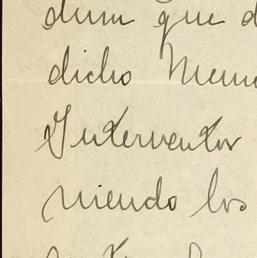 dum que d
dicho Mem
Interventor
niendo los